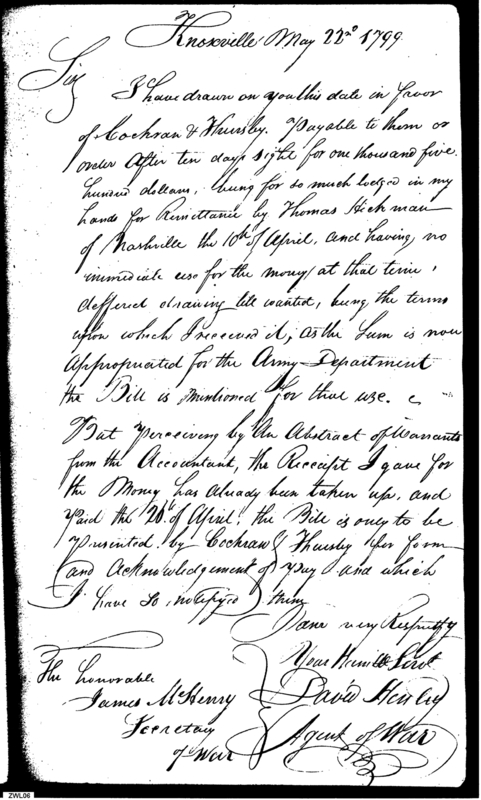 Knoxville May 22nd 1799
Sir
I have drawn on you this date in favor
of Cochran & Thursby. Payable to them or
order After ten days sight for one thousand five
hundred dollars, being for so much lodged in my
hands for Remittance by Thomas Hickman
of Nashville the 10th of April, and having no
immediate use for the money at that time,
deffered drawing till wanted, being the terms
upon which I received it; as the Sum is now
Appropriated for the Army Department
the Bill is mentioned for that use.
But perceiving by An Abstract of Warrants
from the Accountant, the Receipt I gave for
the Money has already been taken up, and
Paid the 20th of April; the Bill is only to be
Presented by Cochran & Thursby for form
and Acknowledgement of pay and which
I have so notifyed them
I am very Respectfy
Your Humble Servt
David Henley
Agent of War
The honorable
James McHenry
Secretary
of War
ZWL06